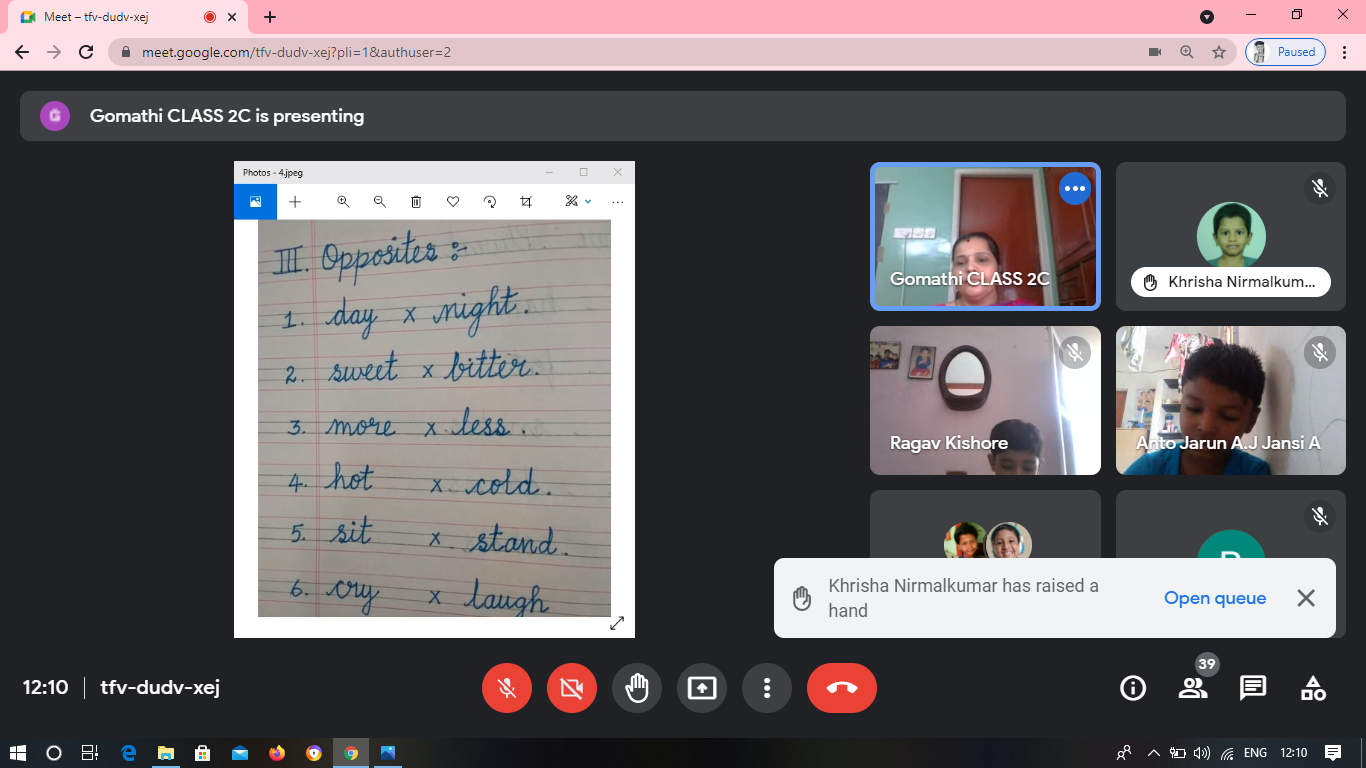 Meet – tfv-dudv-xej
meet.google.com/tfv-dudv-xej?pli=1&authuser=2
Paused
G
Gomathi CLASS 2C is presenting
Photos - 4.jpeg
III. Opposites :-
1. day x night.
2. sweet x bitter.
3. more x less.
4. hot x cold.
5. sit x stand.
6. cry x laugh
Gomathi CLASS 2C
Khrisha Nirmalkum...
Ragav Kishore
Anto Jarun A.J Jansi A
Khrisha Nirmalkumar has raised a
hand
Open queue
12:10 | tfv-dudv-xej
39
ENG 12:10